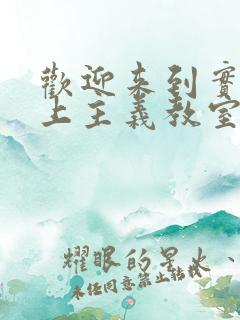 歡迎来到實
上主義教室
耀眼的星火、
未经同意禁止转载